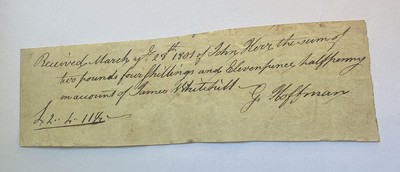 Received March ye 28th 1801 of John Herr the sum of
two pounds four Shillings and Elevenpence halfpenny
on account of James Whitehill
G Hoffman
£ 2 .. 4 .. 11½